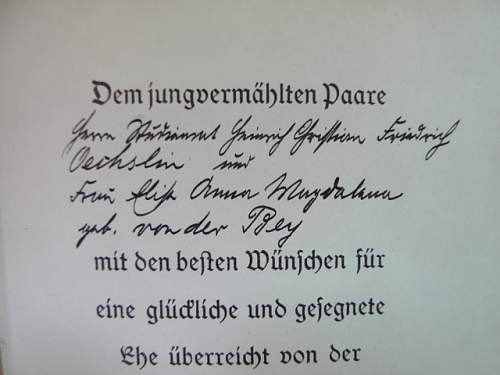 Dem jungvermählten Paare
Herrn Studienrat Heinrich Christian Friedrich
Oechslin und
Frau Elise Anna Magdalena
geb. von der Bey
mit den besten Wünschen für
eine glückliche und gesegnete
Ehe überreicht von der